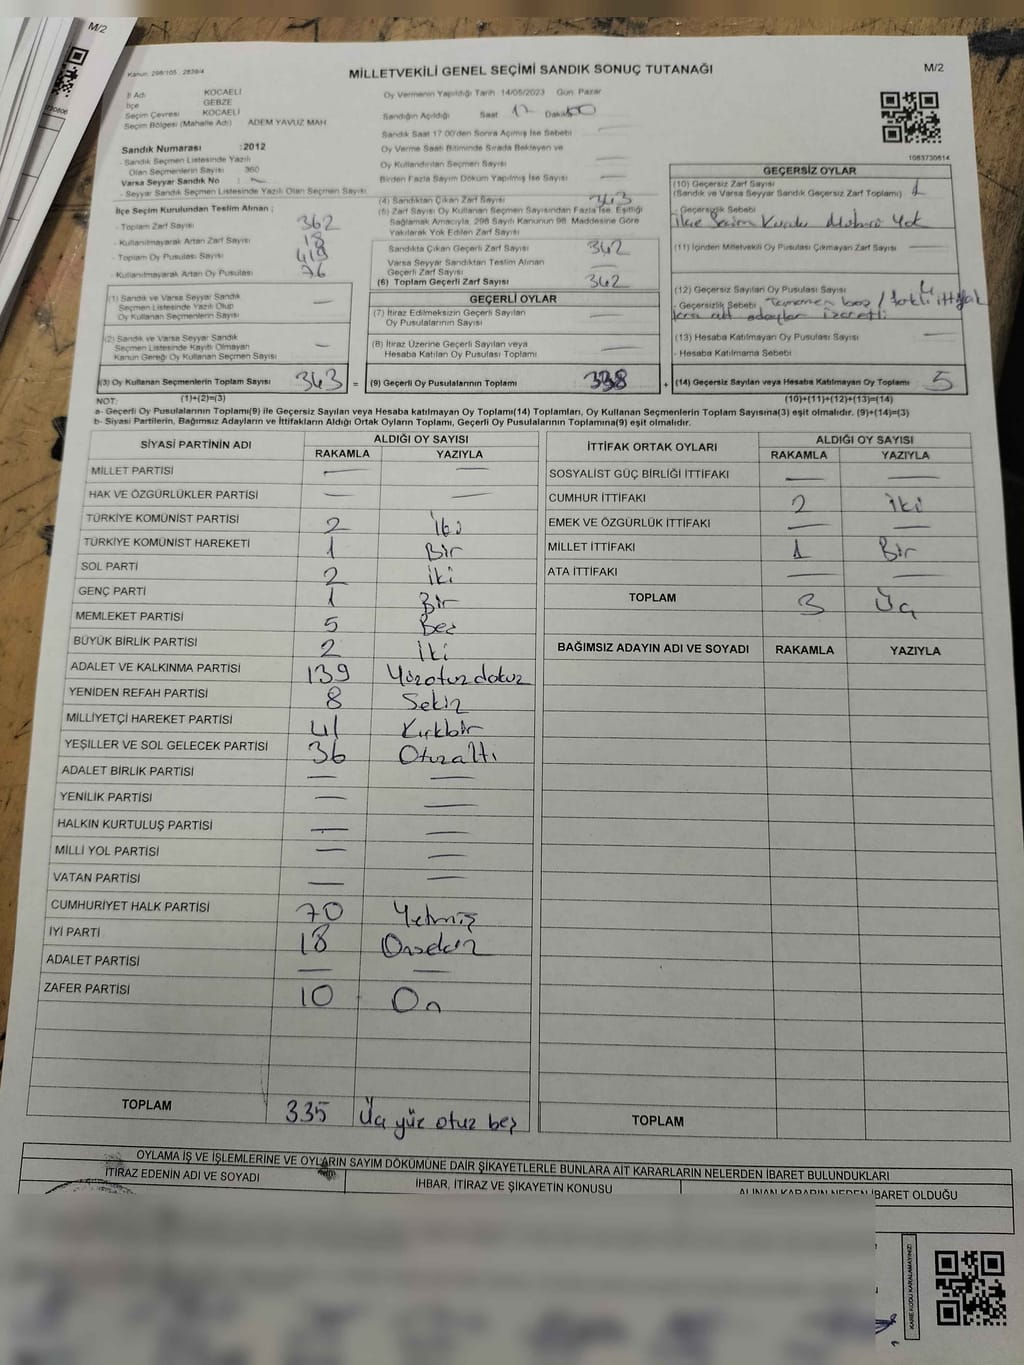 M/2
Kanun: 298/105, 2839/4
MİLLETVEKİLİ GENEL SEÇİMİ SANDIK SONUÇ TUTANAĞI
M/2
İl Adı KOCAELİ
İlçe GEBZE
Seçim Çevresi KOCAELİ
Seçim Bölgesi (Mahalle Adı) ADEM YAVUZ MAH
Sandık Numarası :2012
- Sandık Seçmen Listesinde Yazılı
Olan Seçmenlerin Sayısı 360
Varsa Seyyar Sandık No :
- Seyyar Sandık Seçmen Listesinde Yazılı Olan Seçmen Sayısı
Oy Vermenin Yapıldığı Tarih 14/05/2023 Gün Pazar
Sandığın Açıldığı Saat 17 Dakika 00
Sandık Saat 17:00'den Sonra Açılmış İse Sebebi
Oy Verme Saati Bitiminde Sırada Bekleyen ve
Oy Kullandırılan Seçmen Sayısı
Birden Fazla Sayım Döküm Yapılmış İse Sayısı
1083730614
İlçe Seçim Kurulundan Teslim Alınan ;
- Toplam Zarf Sayısı 362
- Kullanılmayarak Artan Zarf Sayısı 18
- Toplam Oy Pusulası Sayısı 419
- Kullanılmayarak Artan Oy Pusulası 76
(1) Sandık ve Varsa Seyyar Sandık
Seçmen Listesinde Yazılı Olup
Oy Kullanan Seçmenlerin Sayısı —
(2) Sandık ve Varsa Seyyar Sandık
Seçmen Listesinde Kayıtlı Olmayan
Kanun Gereği Oy Kullanan Seçmen Sayısı —
(4) Sandıktan Çıkan Zarf Sayısı 343
(5) Zarf Sayısı Oy Kullanan Seçmen Sayısından Fazla İse, Eşitliği
Sağlamak Amacıyla, 298 Sayılı Kanunun 98. Maddesine Göre
Yakılarak Yok Edilen Zarf Sayısı
Sandıkta Çıkan Geçerli Zarf Sayısı 342
Varsa Seyyar Sandıktan Teslim Alınan
Geçerli Zarf Sayısı —
(6) Toplam Geçerli Zarf Sayısı 342
GEÇERLİ OYLAR
(7) İtiraz Edilmeksizin Geçerli Sayılan
Oy Pusulalarının Sayısı —
(8) İtiraz Üzerine Geçerli Sayılan veya
Hesaba Katılan Oy Pusulası Toplamı —
GEÇERSİZ OYLAR
(10) Geçersiz Zarf Sayısı
(Sandık ve Varsa Seyyar Sandık Geçersiz Zarf Toplamı) 1
- Geçersizlik Sebebi
İlçe Seçim Kurulu Mührü Yok
(11) İçinden Milletvekili Oy Pusulası Çıkmayan Zarf Sayısı —
(12) Geçersiz Sayılan Oy Pusulası Sayısı 4
- Geçersizlik Sebebi Tamamen boş / farklı ittifak
(13) Hesaba Katılmayan Oy Pusulası Sayısı —
- Hesaba Katılmama Sebebi
(3) Oy Kullanan Seçmenlerin Toplam Sayısı 343 = (9) Geçerli Oy Pusulalarının Toplamı 338 + (14) Geçersiz Sayılan veya Hesaba Katılmayan Oy Toplamı 5
NOT: (1)+(2)=(3) (10)+(11)+(12)+(13)=(14)
a- Geçerli Oy Pusulalarının Toplamı(9) ile Geçersiz Sayılan veya Hesaba katılmayan Oy Toplamı(14) Toplamları, Oy Kullanan Seçmenlerin Toplam Sayısına(3) eşit olmalıdır. (9)+(14)=(3)
b- Siyasi Partilerin, Bağımsız Adayların ve İttifakların Aldığı Ortak Oyların Toplamı, Geçerli Oy Pusulalarının Toplamına(9) eşit olmalıdır.
SİYASİ PARTİNİN ADI ALDIĞI OY SAYISI
RAKAMLA YAZIYLA
MİLLET PARTİSİ — —
HAK VE ÖZGÜRLÜKLER PARTİSİ — —
TÜRKİYE KOMÜNİST PARTİSİ 2 İki
TÜRKİYE KOMÜNİST HAREKETİ 1 Bir
SOL PARTİ 2 İki
GENÇ PARTİ 1 Bir
MEMLEKET PARTİSİ 5 Beş
BÜYÜK BİRLİK PARTİSİ 2 İki
ADALET VE KALKINMA PARTİSİ 139 Yüzotuzdokuz
YENİDEN REFAH PARTİSİ 8 Sekiz
MİLLİYETÇİ HAREKET PARTİSİ 41 Kırkbir
YEŞİLLER VE SOL GELECEK PARTİSİ 36 Otuzaltı
ADALET BİRLİK PARTİSİ — —
YENİLİK PARTİSİ — —
HALKIN KURTULUŞ PARTİSİ — —
MİLLİ YOL PARTİSİ — —
VATAN PARTİSİ — —
CUMHURİYET HALK PARTİSİ 70 Yetmiş
İYİ PARTİ 18 Onsekiz
ADALET PARTİSİ — —
ZAFER PARTİSİ 10 On
TOPLAM 335 Üç yüz otuz beş
İTTİFAK ORTAK OYLARI ALDIĞI OY SAYISI
RAKAMLA YAZIYLA
SOSYALİST GÜÇ BİRLİĞİ İTTİFAKI — —
CUMHUR İTTİFAKI 2 İki
EMEK VE ÖZGÜRLÜK İTTİFAKI — —
MİLLET İTTİFAKI 1 Bir
ATA İTTİFAKI — —
TOPLAM 3 Üç
BAĞIMSIZ ADAYIN ADI VE SOYADI RAKAMLA YAZIYLA
TOPLAM
OYLAMA İŞ VE İŞLEMLERİNE VE OYLARIN SAYIM DÖKÜMÜNE DAİR ŞİKAYETLERLE BUNLARA AİT KARARLARIN NELERDEN İBARET BULUNDUKLARI
İTİRAZ EDENİN ADI VE SOYADI İHBAR, İTİRAZ VE ŞİKAYETİN KONUSU ALINAN KARARIN NEDEN İBARET OLDUĞU
KARE KODU KARALAMAYINIZ!